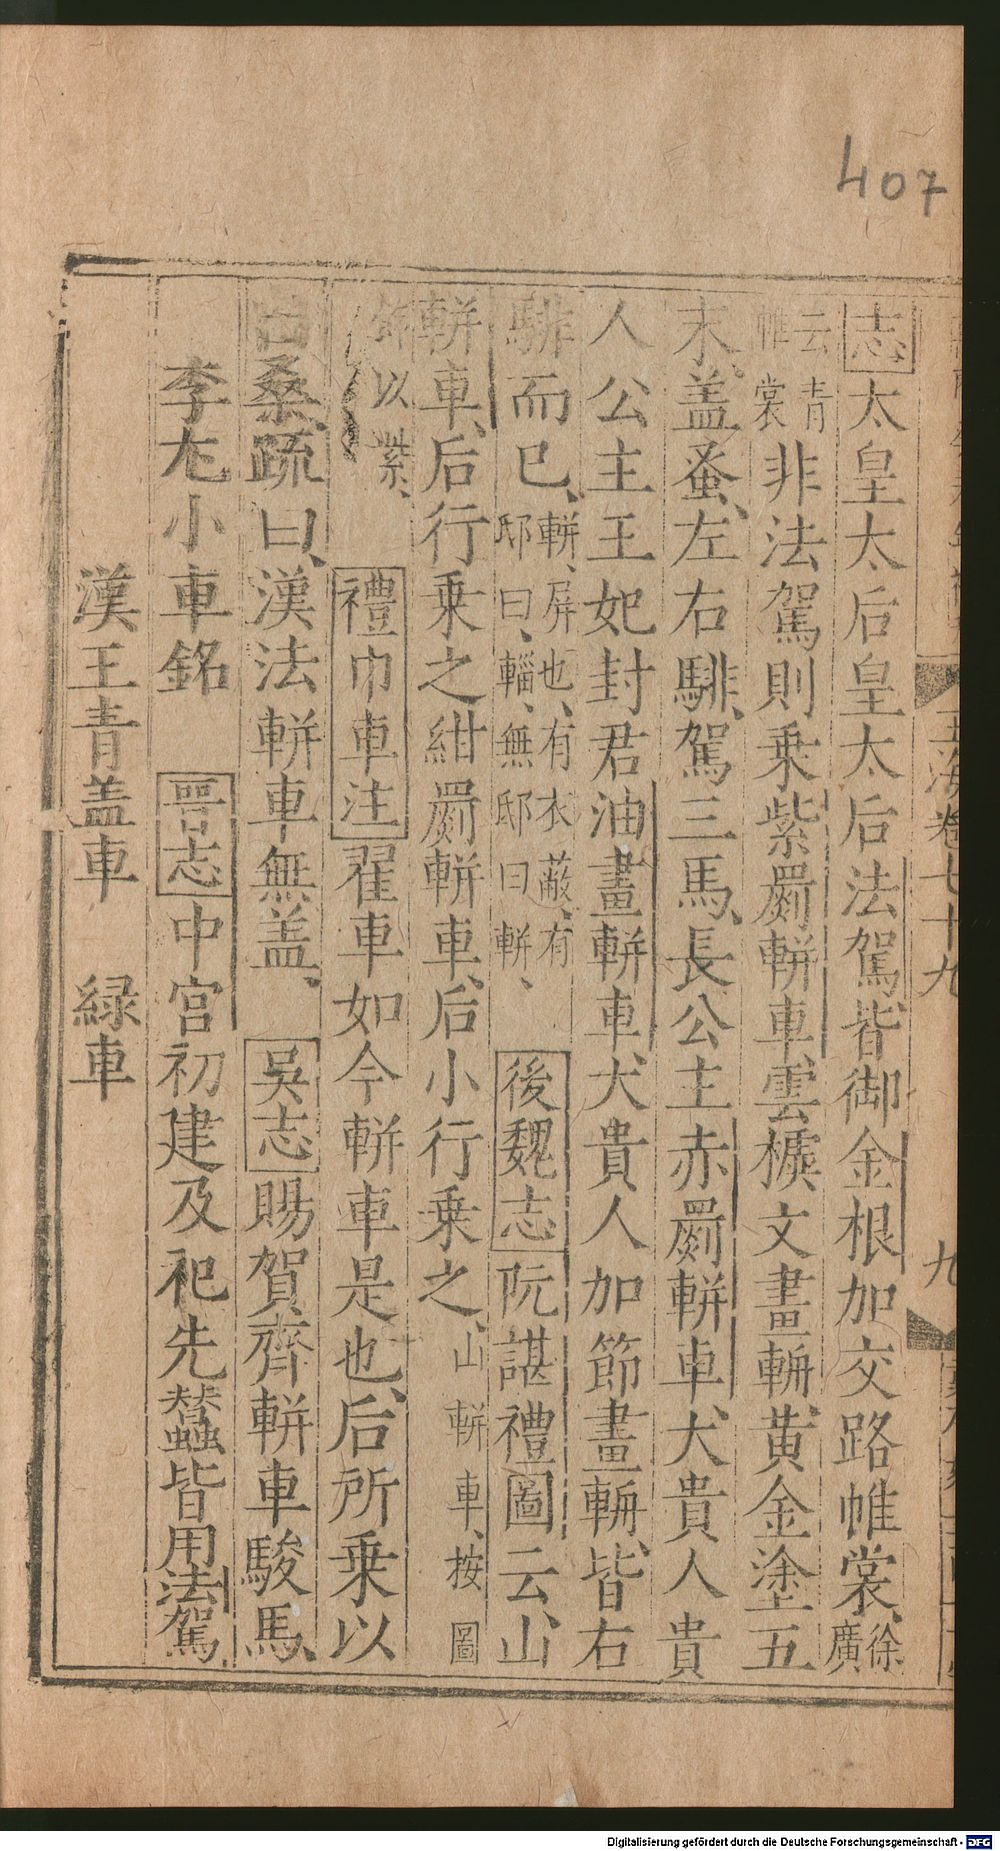 407
玉海卷七十九
九
志太皇太后皇太后法駕皆御金根加交路帷裳徐廣
云青帷裳非法駕則乗紫罽軿車雲㯫文畫輈黄金塗五
末盖蚤左右騑駕三馬長公主赤罽軿車大貴人貴
人公主王妃封君油畫軿車大貴人加節畫輈皆右
騑而已軿屏也有衣蔽有邸曰輜無邸曰軿後魏志阮諶禮圖云山
軿車后行乗之紺罽軿車后小行乗之山軿車按圖
飾以紫禮巾車注翟車如今軿車是也后所乗以
桑疏曰漢法軿車無盖吳志賜賀齊軿車駿馬
李尤小車銘 晉志中宮初建及祀先蠶皆用法駕
漢王青盖車 緑車
Digitalisierung gefördert durch die Deutsche Forschungsgemeinschaft - DFG